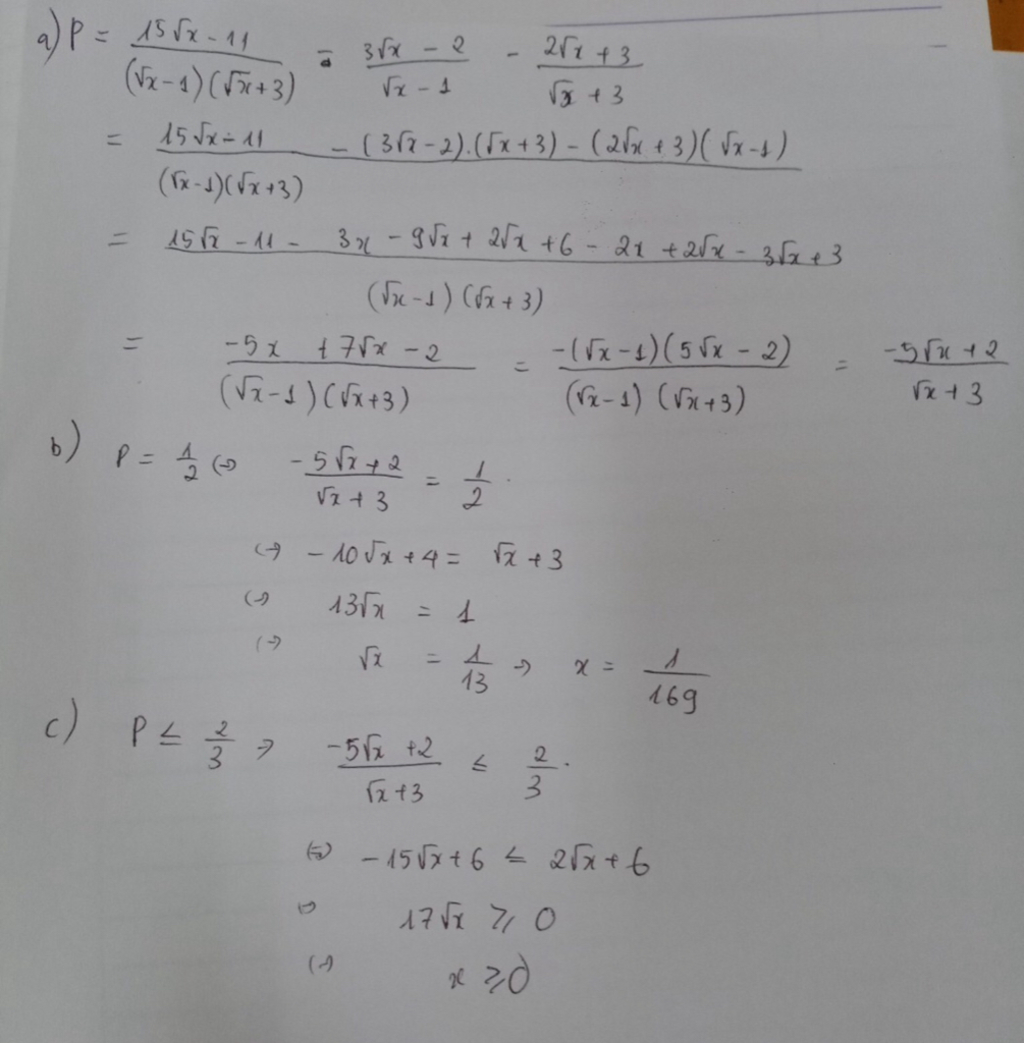 a) P = (15√x - 11)/((√x - 1)(√x + 3)) - (3√x - 2)/(√x - 1) - (2√x + 3)/(√x + 3)
= (15√x - 11 - (3√x - 2).(√x + 3) - (2√x + 3)(√x - 1))/((√x - 1)(√x + 3))
= (15√x - 11 - 3x - 9√x + 2√x + 6 - 2x + 2√x - 3√x + 3)/((√x - 1)(√x + 3))
= (-5x + 7√x - 2)/((√x - 1)(√x + 3)) = (-(√x - 1)(5√x - 2))/((√x - 1)(√x + 3)) = (-5√x + 2)/(√x + 3)
b) P = 1/2 (=) (-5√x + 2)/(√x + 3) = 1/2.
(=) -10√x + 4 = √x + 3
(=) 13√x = 1
(=) √x = 1/13 => x = 1/169
c) P ≤ 2/3 => (-5√x + 2)/(√x + 3) ≤ 2/3.
(=) -15√x + 6 ≤ 2√x + 6
(=) 17√x ≥ 0
(=) x ≥ 0